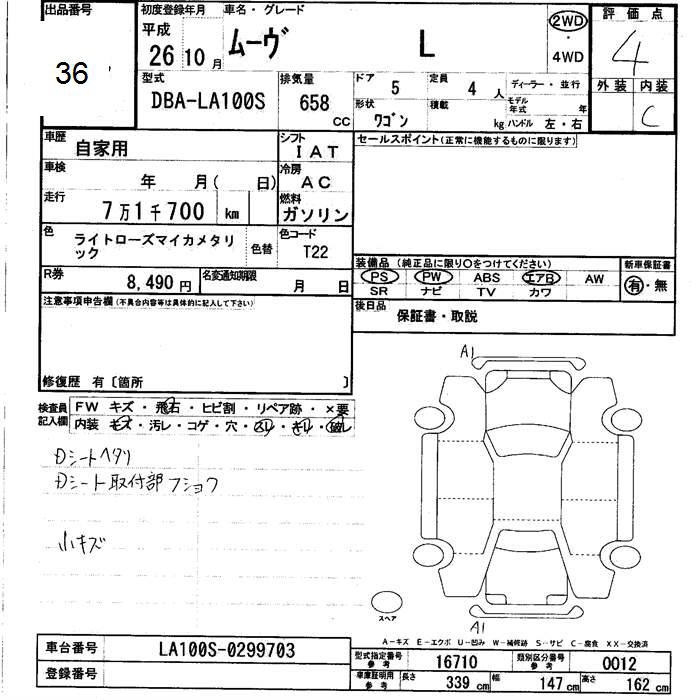 出品番号
36
初度登録年月
平成
26 10 月
車名・グレード
ムーヴ L
2WD
・
4WD
評価点
4
外装 内装
C
型式
DBA-LA100S
排気量
658
CC
ドア
5
定員
4 人
ディーラー・並行
形状
ワゴン
積載
kg
モデル年式 年
ハンドル 左・右
車歴
自家用
シフト
IAT
セールスポイント(正常に機能するものに限ります)
車検
年 月( 日)
冷房
AC
走行
7万1千700 km
燃料
ガソリン
色
ライトローズマイカメタリ
ック
色替
色コード
T22
R券
8,490 円
名変通知期限
月 日
装備品 (純正品に限り○をつけてください)
PS PW ABS エアB AW
SR ナビ TV カワ
新車保証書
有・無
注意事項申告欄(不具合内容等は具体的に記入して下さい)
後日品
保証書・取説
修復歴 有〔箇所 〕
検査員
記入欄
FW キズ・飛石・ヒビ割・リペア跡・×要
内装 キズ・汚レ・コゲ・穴・スリ・キリ・破レ
Dシートヘタリ
Dシート取付部フショク
小キズ
A1
A1
スペア
A−キズ E−エクボ U−凹み W−補修跡 S−サビ C−腐食 XX−交換済
車台番号
LA100S-0299703
登録番号
型式指定番号
参考
16710
類別区分番号
参考
0012
車庫証明用
参考
長さ
339 cm
幅
147 cm
高さ
162 cm